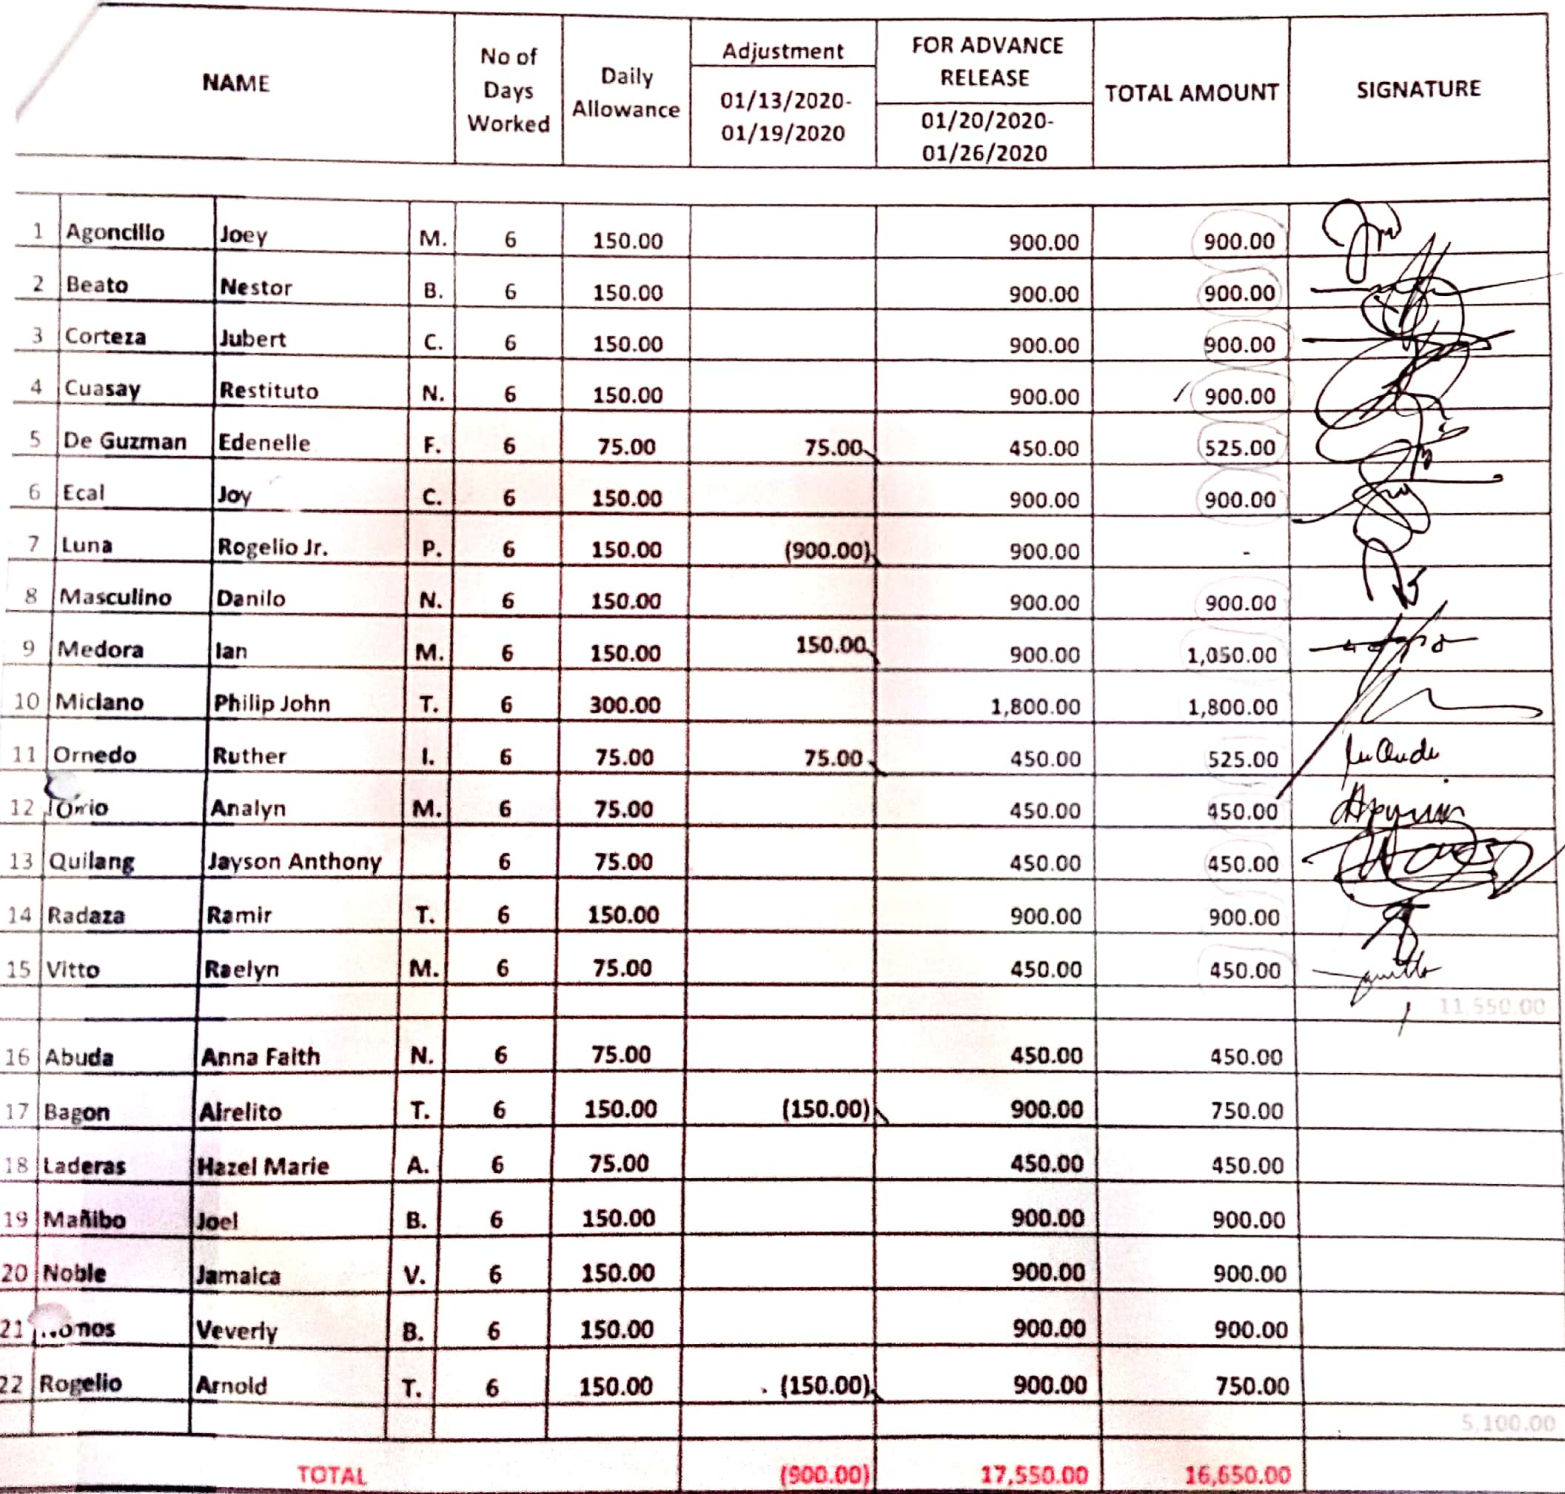 NAME No of Days Worked Daily Allowance Adjustment 01/13/2020- 01/19/2020 FOR ADVANCE RELEASE 01/20/2020- 01/26/2020 TOTAL AMOUNT SIGNATURE
1 Agoncillo Joey M. 6 150.00 900.00 900.00
2 Beato Nestor B. 6 150.00 900.00 900.00
3 Corteza Jubert C. 6 150.00 900.00 900.00
4 Cuasay Restituto N. 6 150.00 900.00 900.00
5 De Guzman Edenelle F. 6 75.00 75.00 450.00 525.00
6 Ecal Joy C. 6 150.00 900.00 900.00
7 Luna Rogelio Jr. P. 6 150.00 (900.00) 900.00 -
8 Masculino Danilo N. 6 150.00 900.00 900.00
9 Medora Ian M. 6 150.00 150.00 900.00 1,050.00
10 Miclano Philip John T. 6 300.00 1,800.00 1,800.00
11 Ornedo Ruther I. 6 75.00 75.00 450.00 525.00
12 Analyn M. 6 75.00 450.00 450.00
13 Quilang Jayson Anthony 6 75.00 450.00 450.00
14 Radaza Ramir T. 6 150.00 900.00 900.00
15 Vitto Raelyn M. 6 75.00 450.00 450.00
11,550.00
16 Abuda Anna Faith N. 6 75.00 450.00 450.00
17 Bagon Airelito T. 6 150.00 (150.00) 900.00 750.00
18 Laderas Hazel Marie A. 6 75.00 450.00 450.00
19 Mañibo Joel B. 6 150.00 900.00 900.00
20 Noble Jamaica V. 6 150.00 900.00 900.00
21 Veverly B. 6 150.00 900.00 900.00
22 Rogelio Arnold T. 6 150.00 (150.00) 900.00 750.00
5,100.00
TOTAL (900.00) 17,550.00 16,650.00